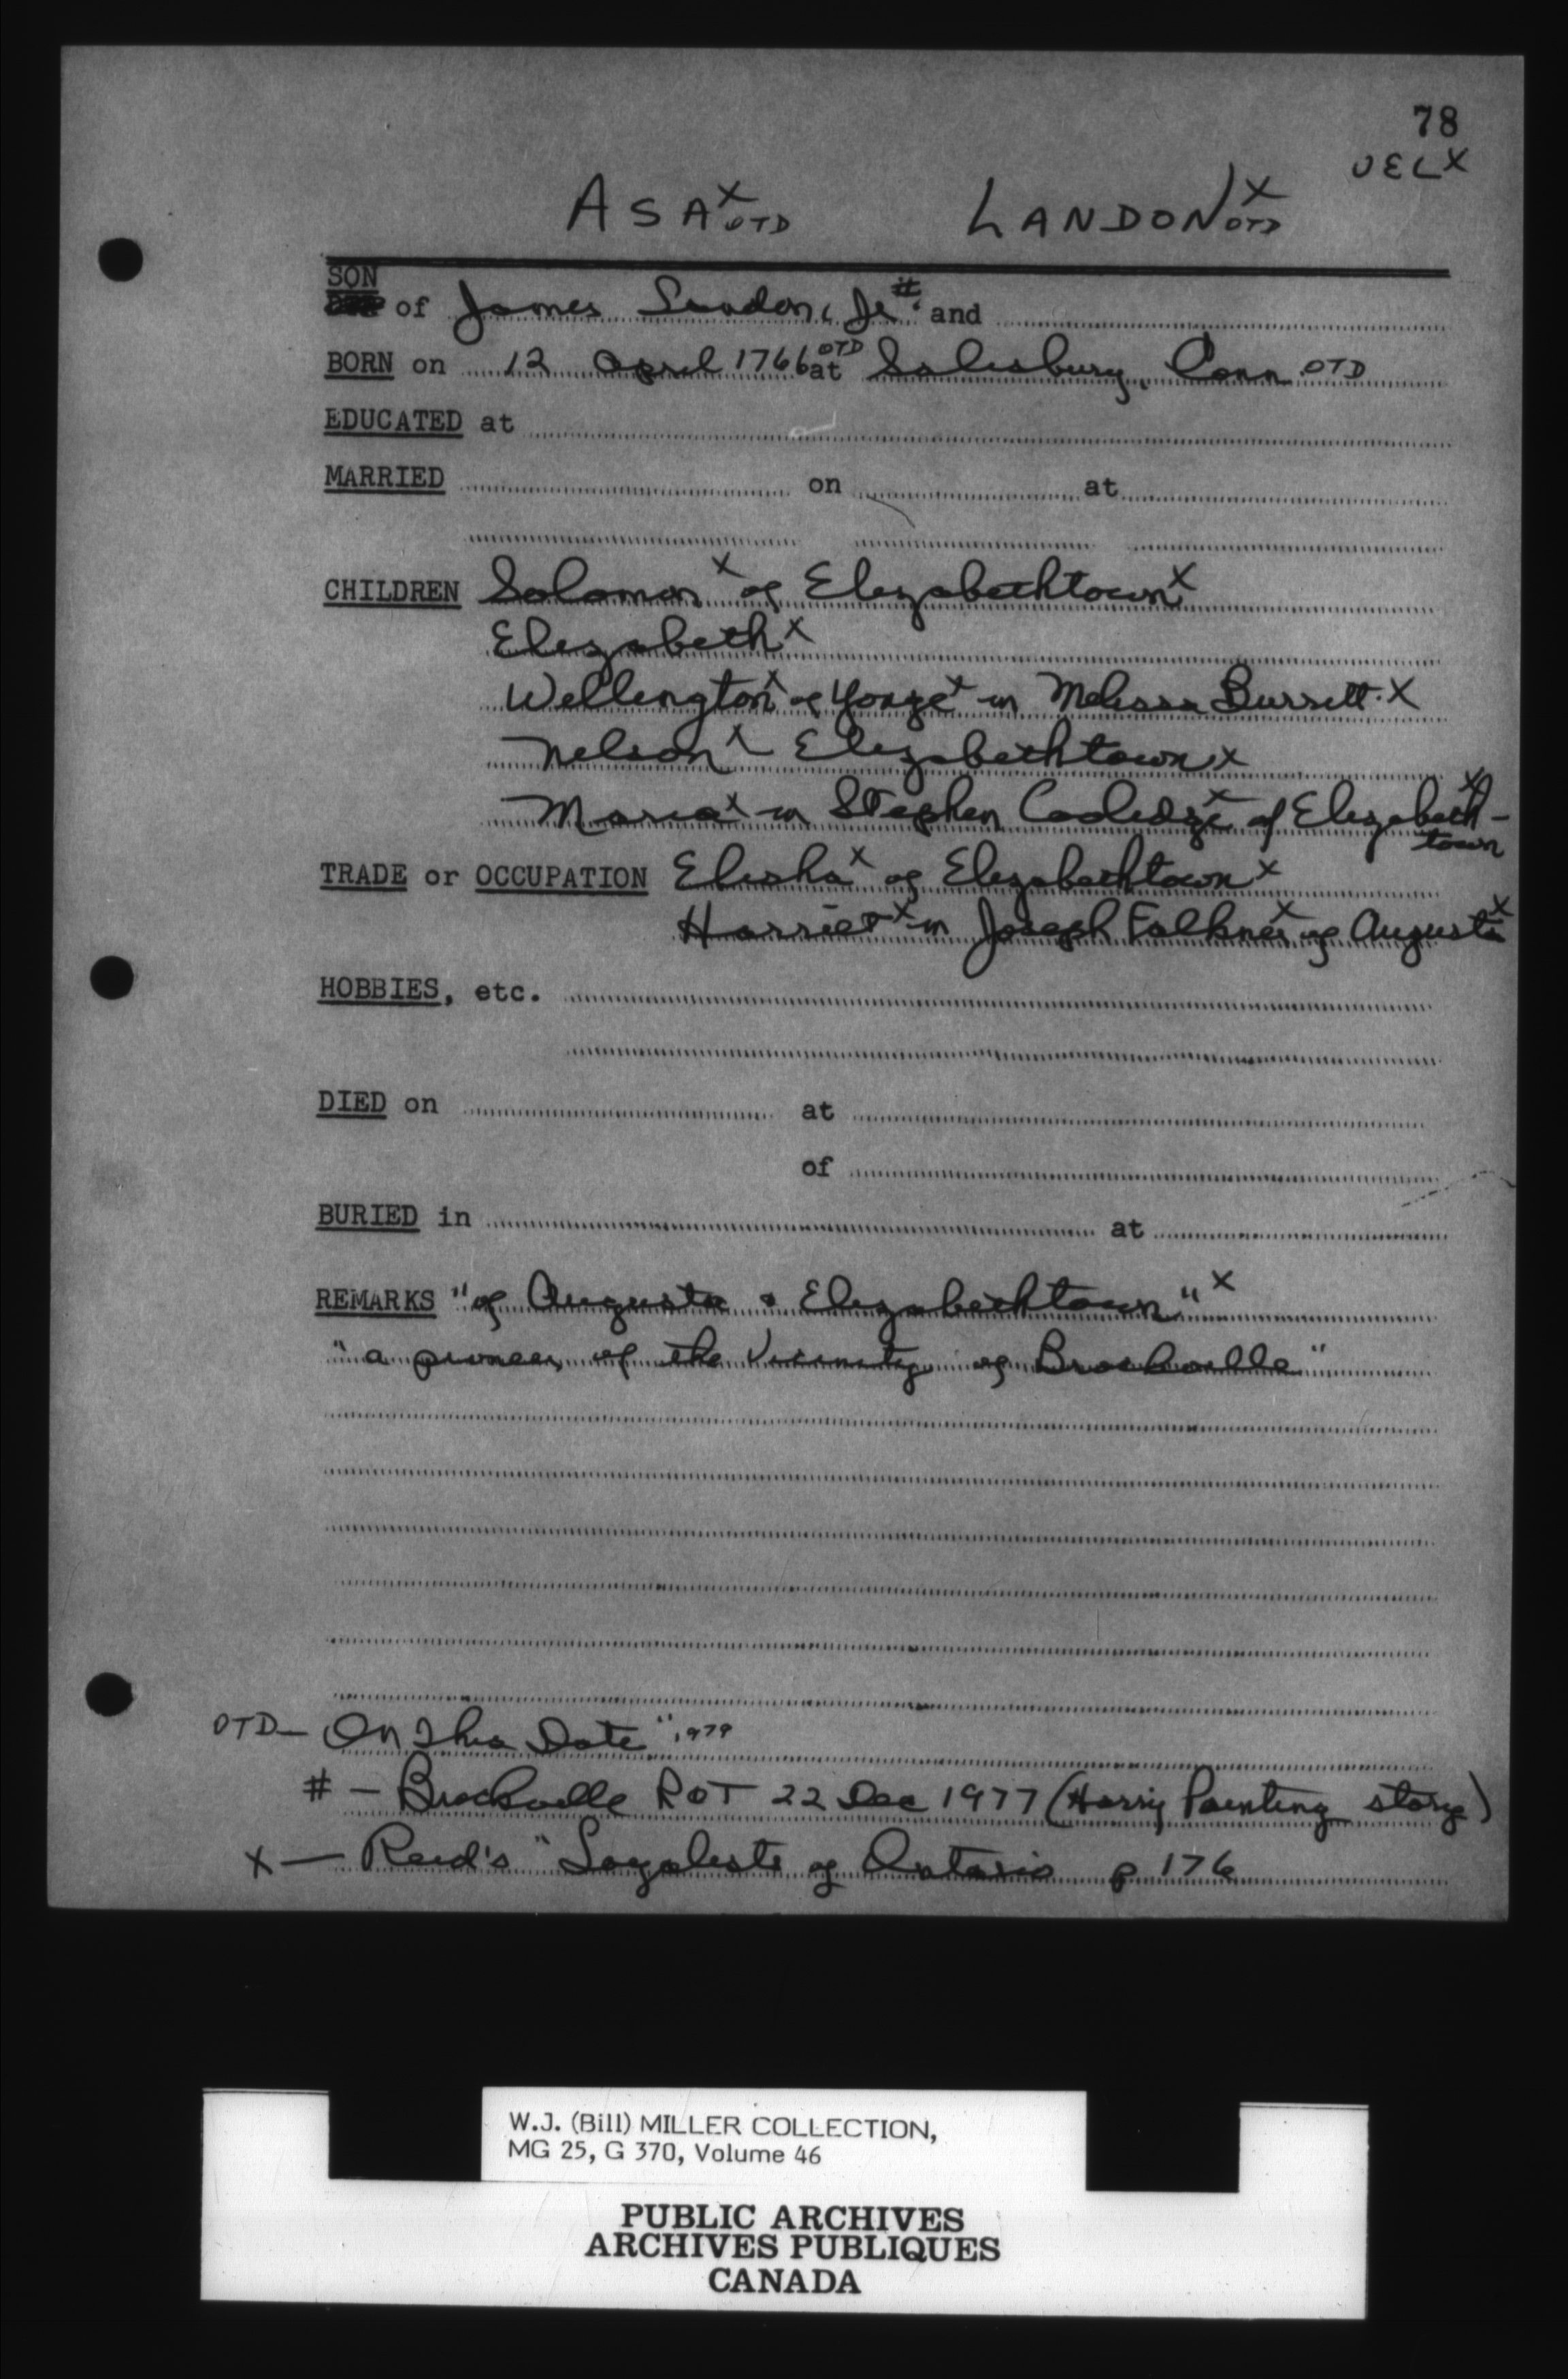 78
UEL X
ASA X OTD LANDON X OTD
SON
of James Landon, Jr # and
BORN on 12 April 1766 OTD at Salesbury, Conn OTD
EDUCATED at
MARRIED on at
CHILDREN Solomon X of Elizabethtown X
Elizabeth X
Wellington X of Yonge X m Melissa Burrett X
Nelson X Elizabethtown X
Maria X m Stephen Cooledge X of Elizabeth- X
town
TRADE or OCCUPATION Elisha X of Elizabethtown X
Harriet X m Joseph Falkner X of Augusta X
HOBBIES, etc.
DIED on at
of
BURIED in at
REMARKS "of Augusta & Elizabethtown" X
"a pioneer of the vicinity of Brockville"
OTD — On This Date" 1979
# — Brockville R&T 22 Dec 1977 (Harry Painting story)
X — Reid's "Loyalists of Ontario p 176
W.J. (Bill) MILLER COLLECTION,
MG 25, G 370, Volume 46
PUBLIC ARCHIVES
ARCHIVES PUBLIQUES
CANADA